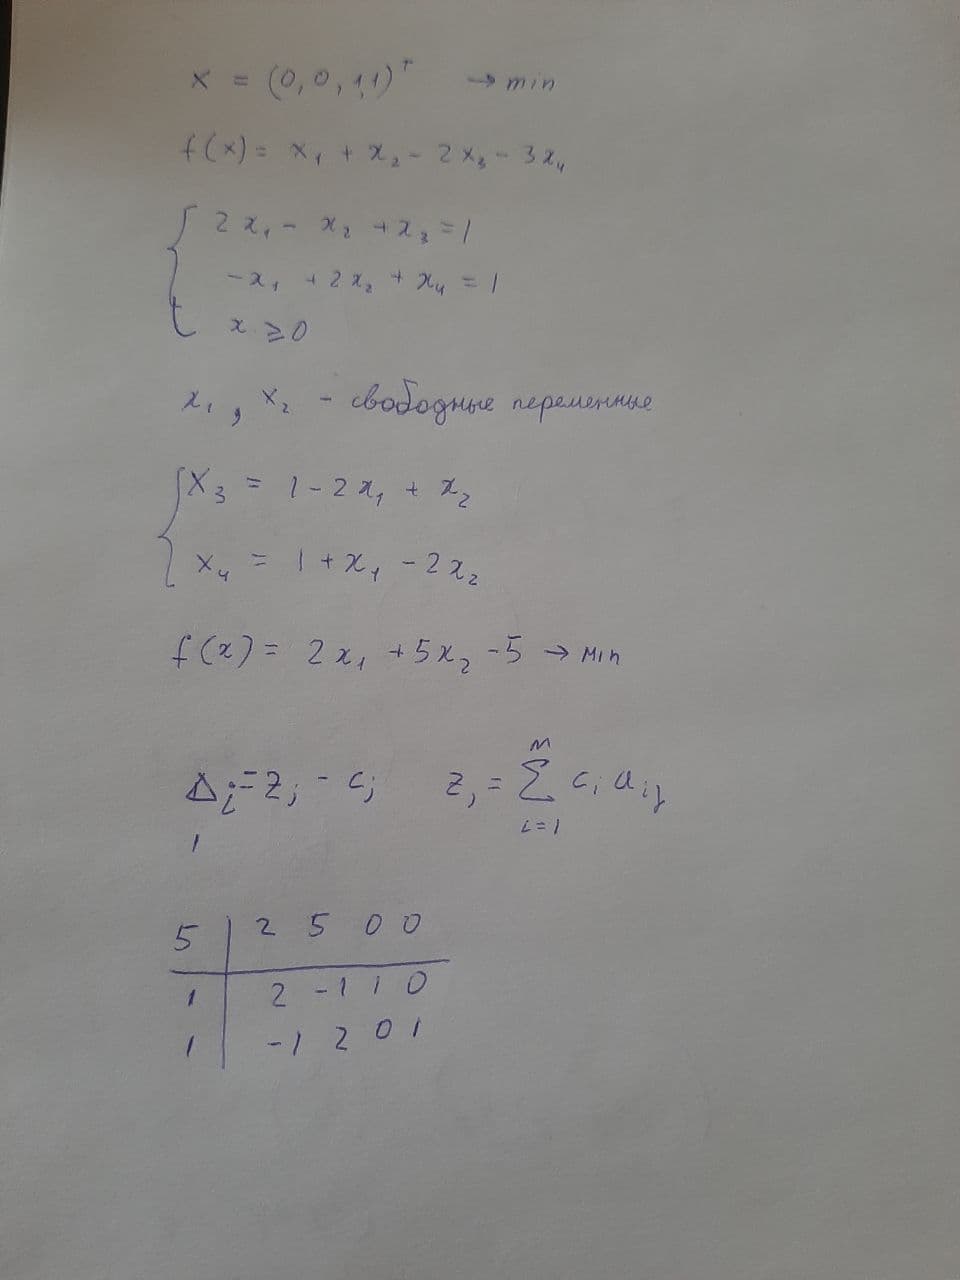 x = (0, 0, 1, 1)ᵀ → min
f(x) = x₁ + x₂ - 2x₃ - 3x₄
2x₁ - x₂ + x₃ = 1
-x₁ + 2x₂ + x₄ = 1
x ≥ 0
x₁, x₂ - свободные переменные
x₃ = 1 - 2x₁ + x₂
x₄ = 1 + x₁ - 2x₂
f(x) = 2x₁ + 5x₂ - 5 → min
Δj = zj - cj zj = Σ cᵢ aᵢj
m
i=1
5 | 2 5 0 0
1 | 2 -1 1 0
1 | -1 2 0 1